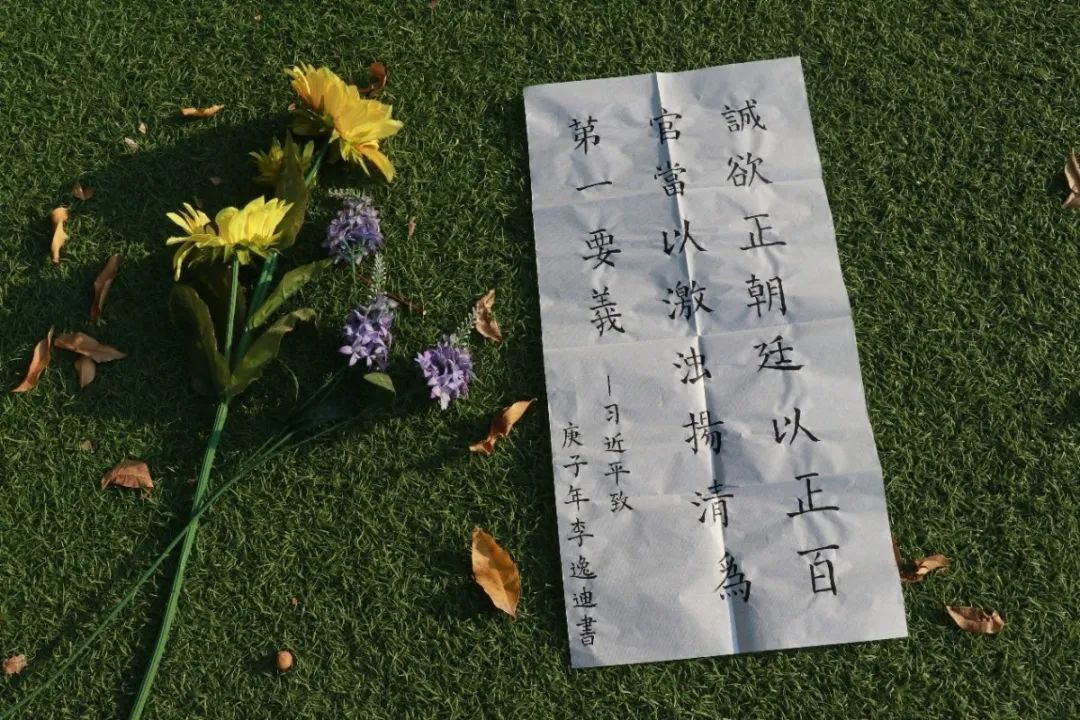 誠欲正朝廷以正百
官當以激浊揚清為
苐一要義
—习近平致
庚子年李逸迪書